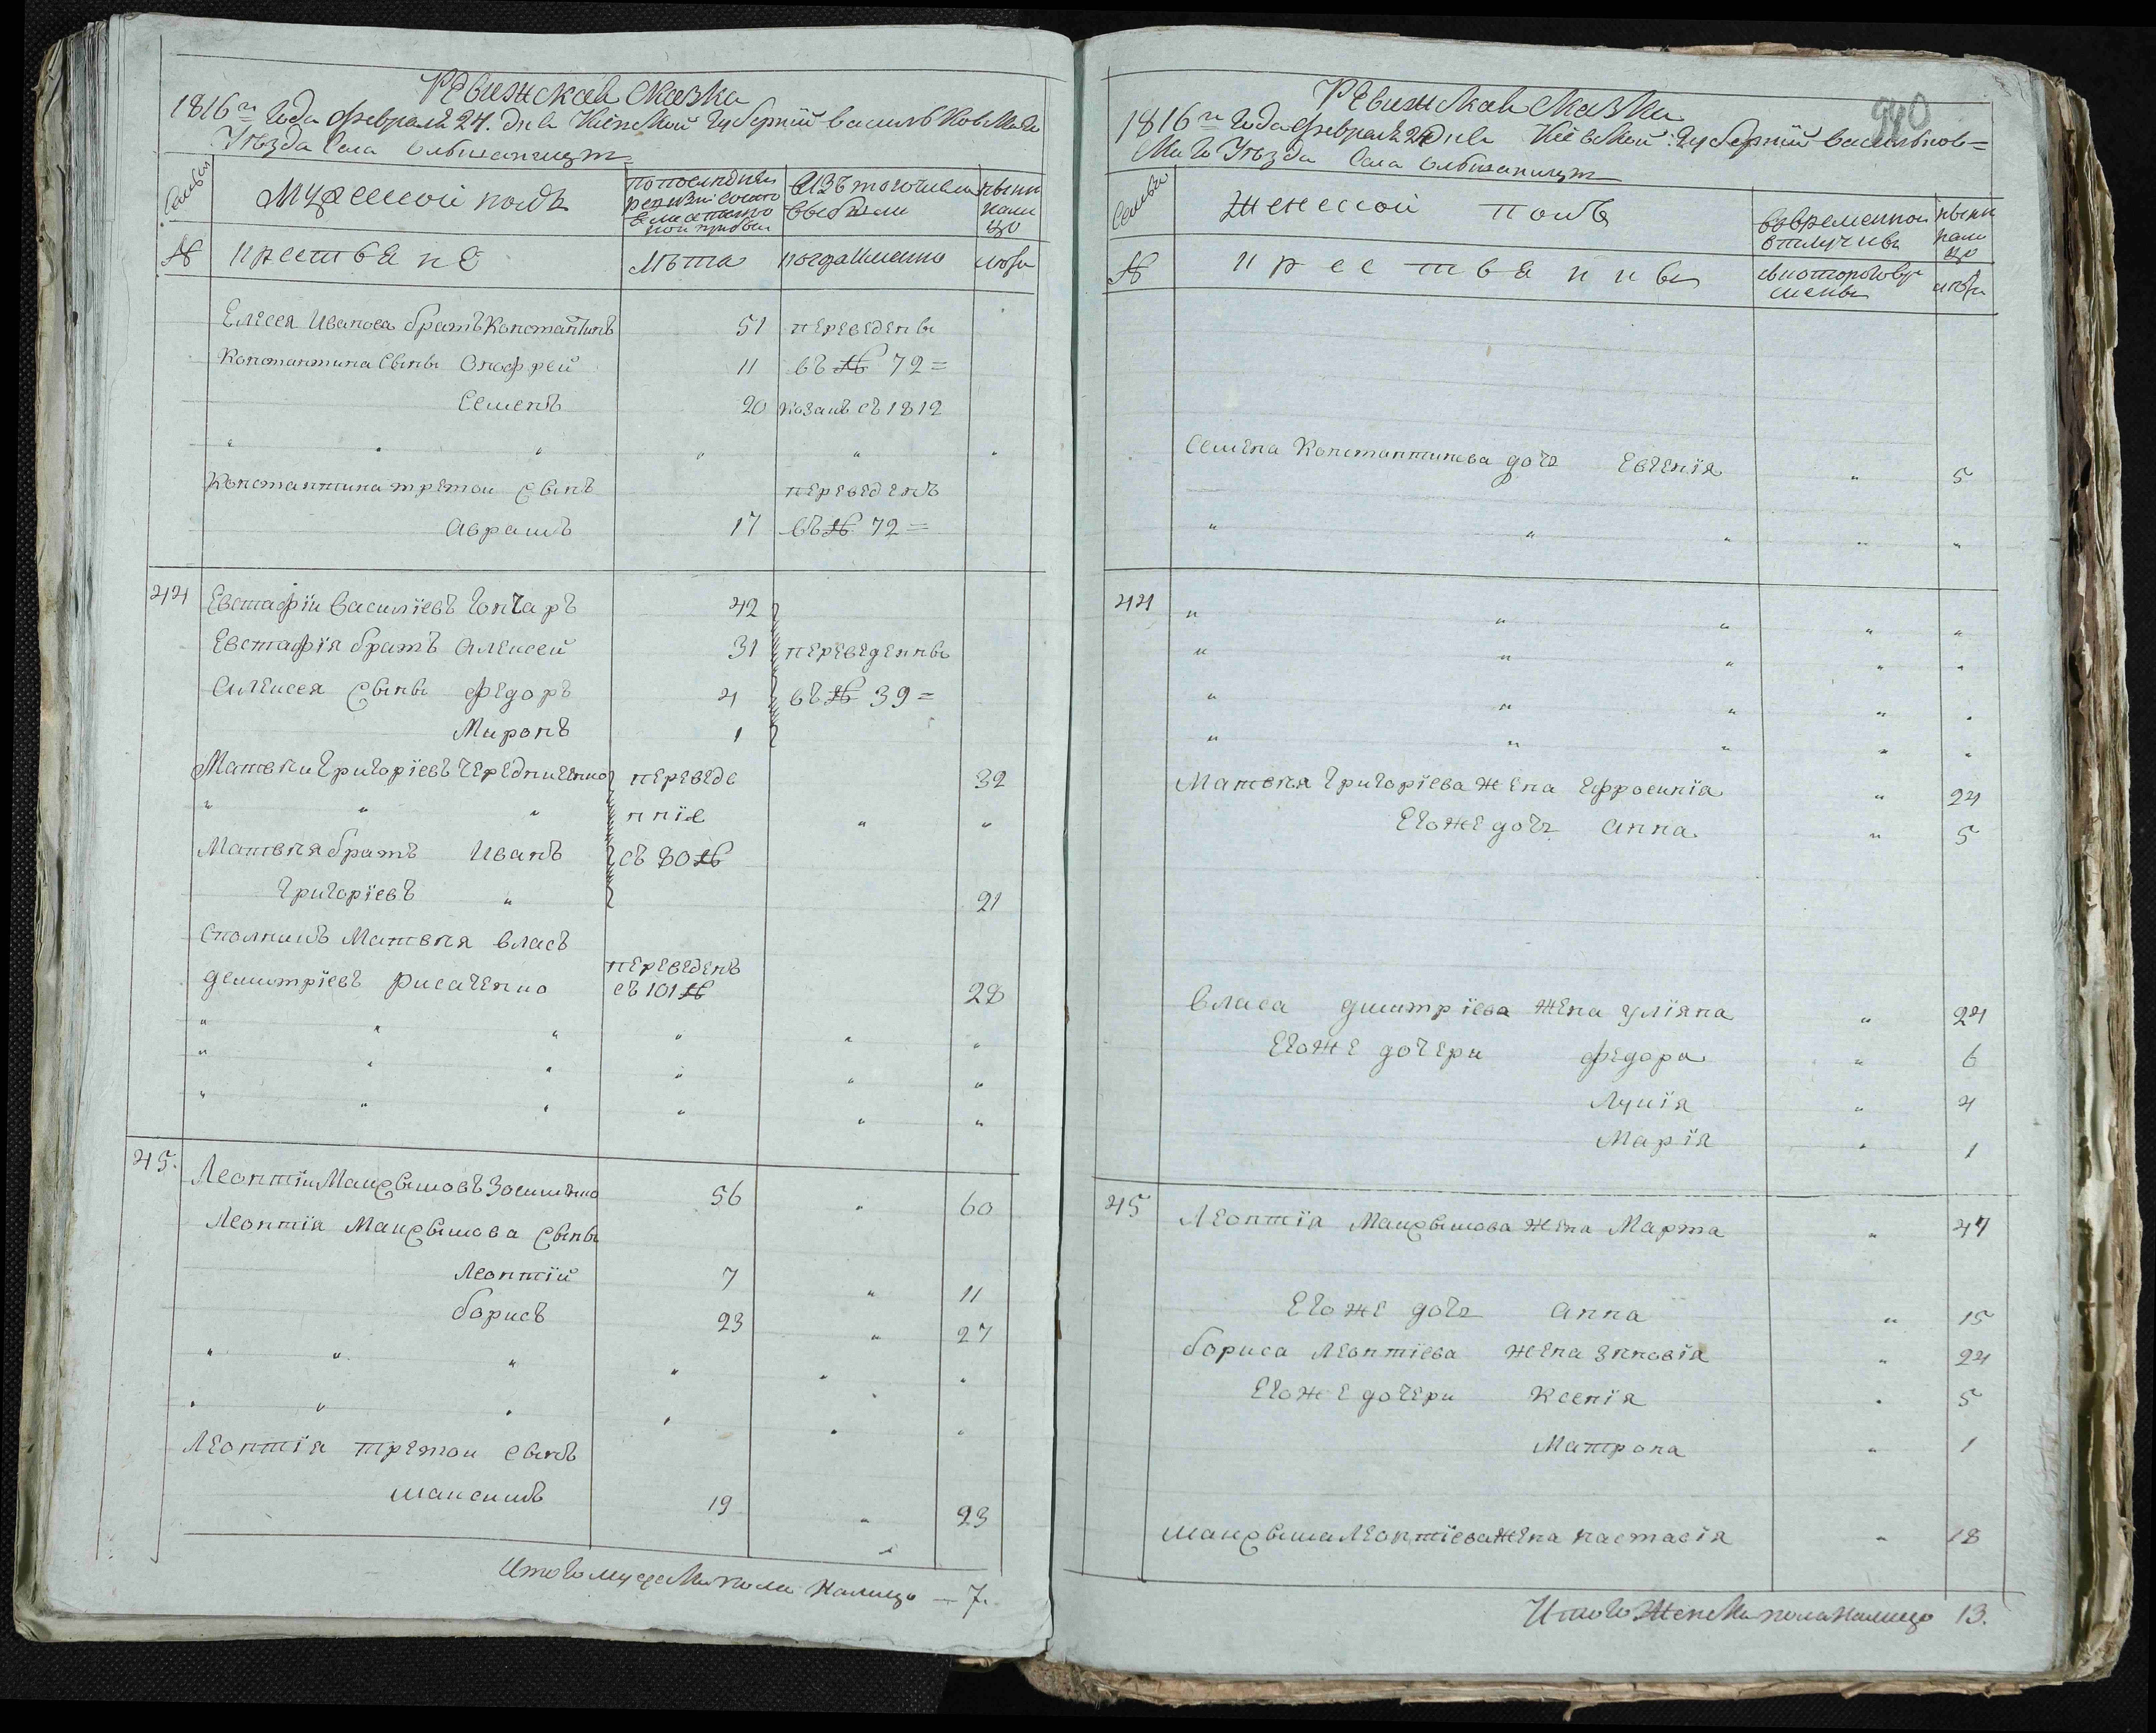 Ревижская сказка
1816го года февраля 24. дня Кіевской губерніи васильковскаго
Уѣзда села
Семьи
Мужеской полъ
по последней ревизіи состояло
Изъ того числа выбыли
ныне налицо
№ крестьяне
Лѣта
когда именно
лѣта
Елисея Иванова братъ Константинъ 51 переведены
Константина сыны Онофрей 11 въ № 72 =
Семенъ 20 казакъ съ 1812
" " " " " "
Константина третои сынъ переведенъ
Аврамъ 17 въ № 72 =
44 Евстафіи василіевъ гончаръ 42
Евстафія братъ алексей 31 переведенны
алексея сыны федоръ 4 въ № 39 =
Миронъ 1
Матвѣи григоріевъ чередниченко переведе 32
" " " нніе " "
Матвѣя братъ иванъ съ 80 №
григоріевъ " 21
Матвѣя власъ
демитріевъ рисаченко переведенъ съ 101 № 28
" " " " " "
" " " " " "
" " " " " "
45. Леонтіи Максымовъ 56 " 60
Леонтія Максымова сыны
Леонтій 7 " 11
борисъ 23 " 27
" " " " " "
" " " " " "
Леонтія третои сынъ
максимъ 19 " 23
Итого мужеска пола налицо — 7.
940
Ревижская сказка
1816го года февраля 24 дня Кіевской губерніи васильков=
скаго Уѣзда села
Семьи
Женеской полъ
во временной отлучкѣ
ныне налицо
№ крестьянки
съ котораго времены
лѣта
Семена Константинова дочь Евгенія " 5
" " " " "
44 " " " " "
" " " " "
" " " " "
" " " " "
Матвѣя григоріева жена ефросинія " 24
Егоже дочь анна " 5
власа дмитріева жена уліяна " 24
Егоже дочери федора " 6
Лукія " 4
Марія " 1
45 Леонтія Максымова жена Марта " 47
Егоже дочь анна " 15
бориса Леонтіева жена зѣновія " 24
Егоже дочери Ксенія " 5
Матрона " 1
максыма Леонтіева жена настасія " 18
Итого женска пола налицо 13.